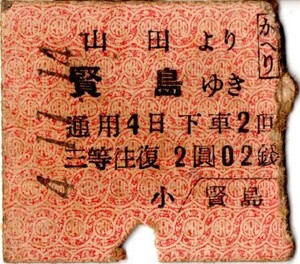 山田より
かへり
賢島ゆき
通用4日下車2回
二等往復 2圓02銭
小／賢島